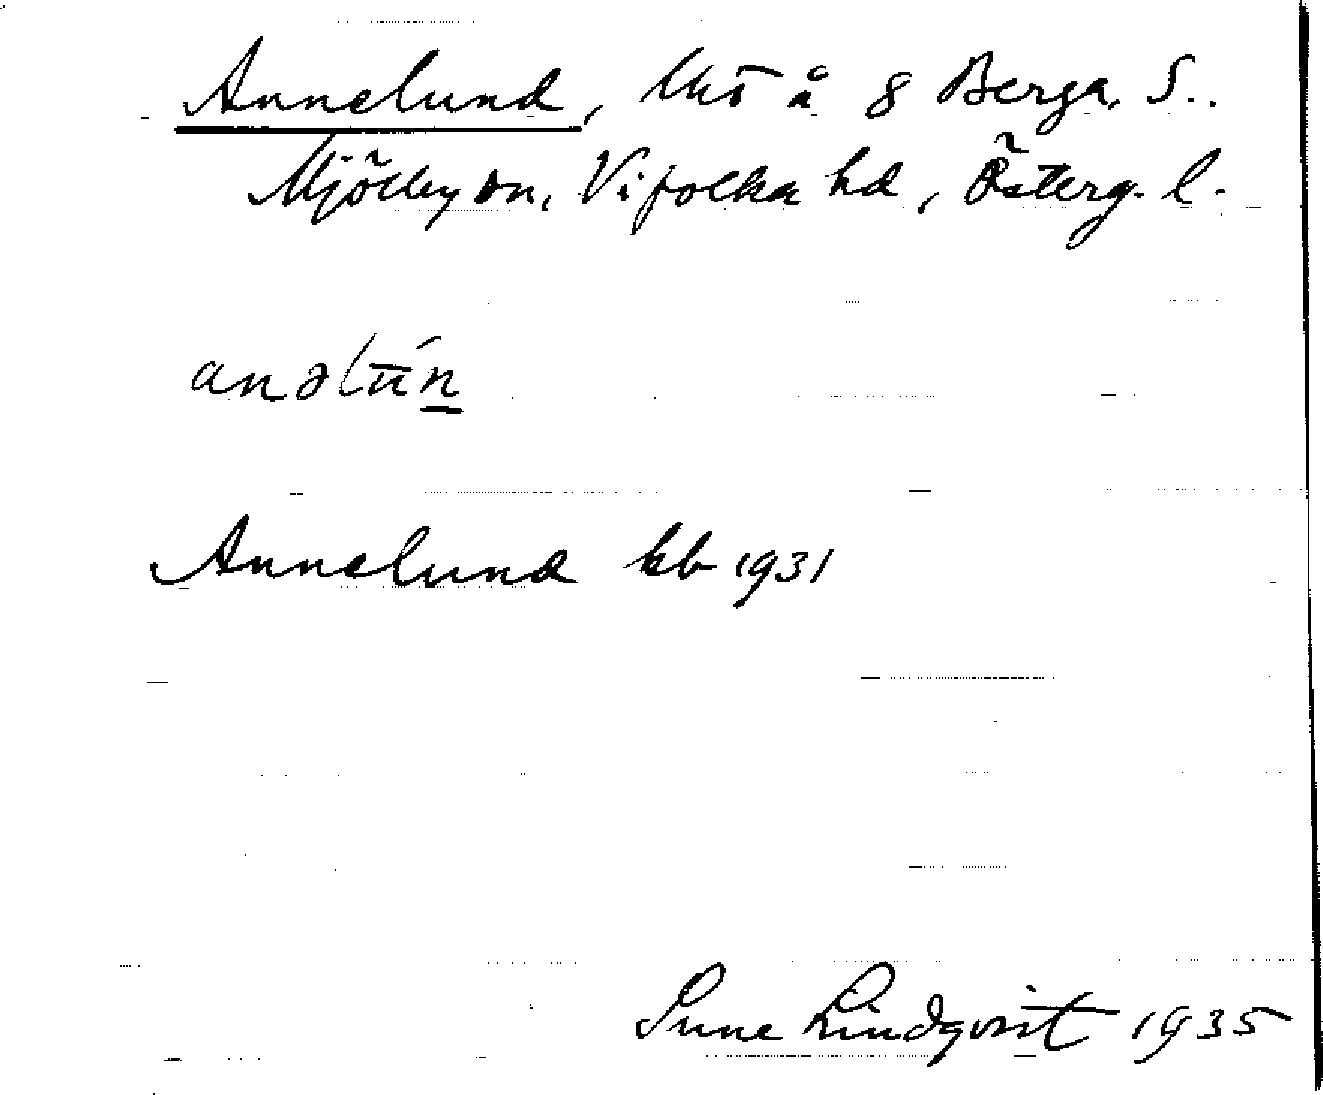 Annelund, lhs å 8 Berga, S..
Mjölby sn, Vifolka hd, Österg. l.
anəlūn
Annelund kb 1931
Sune Lindqvist 1935